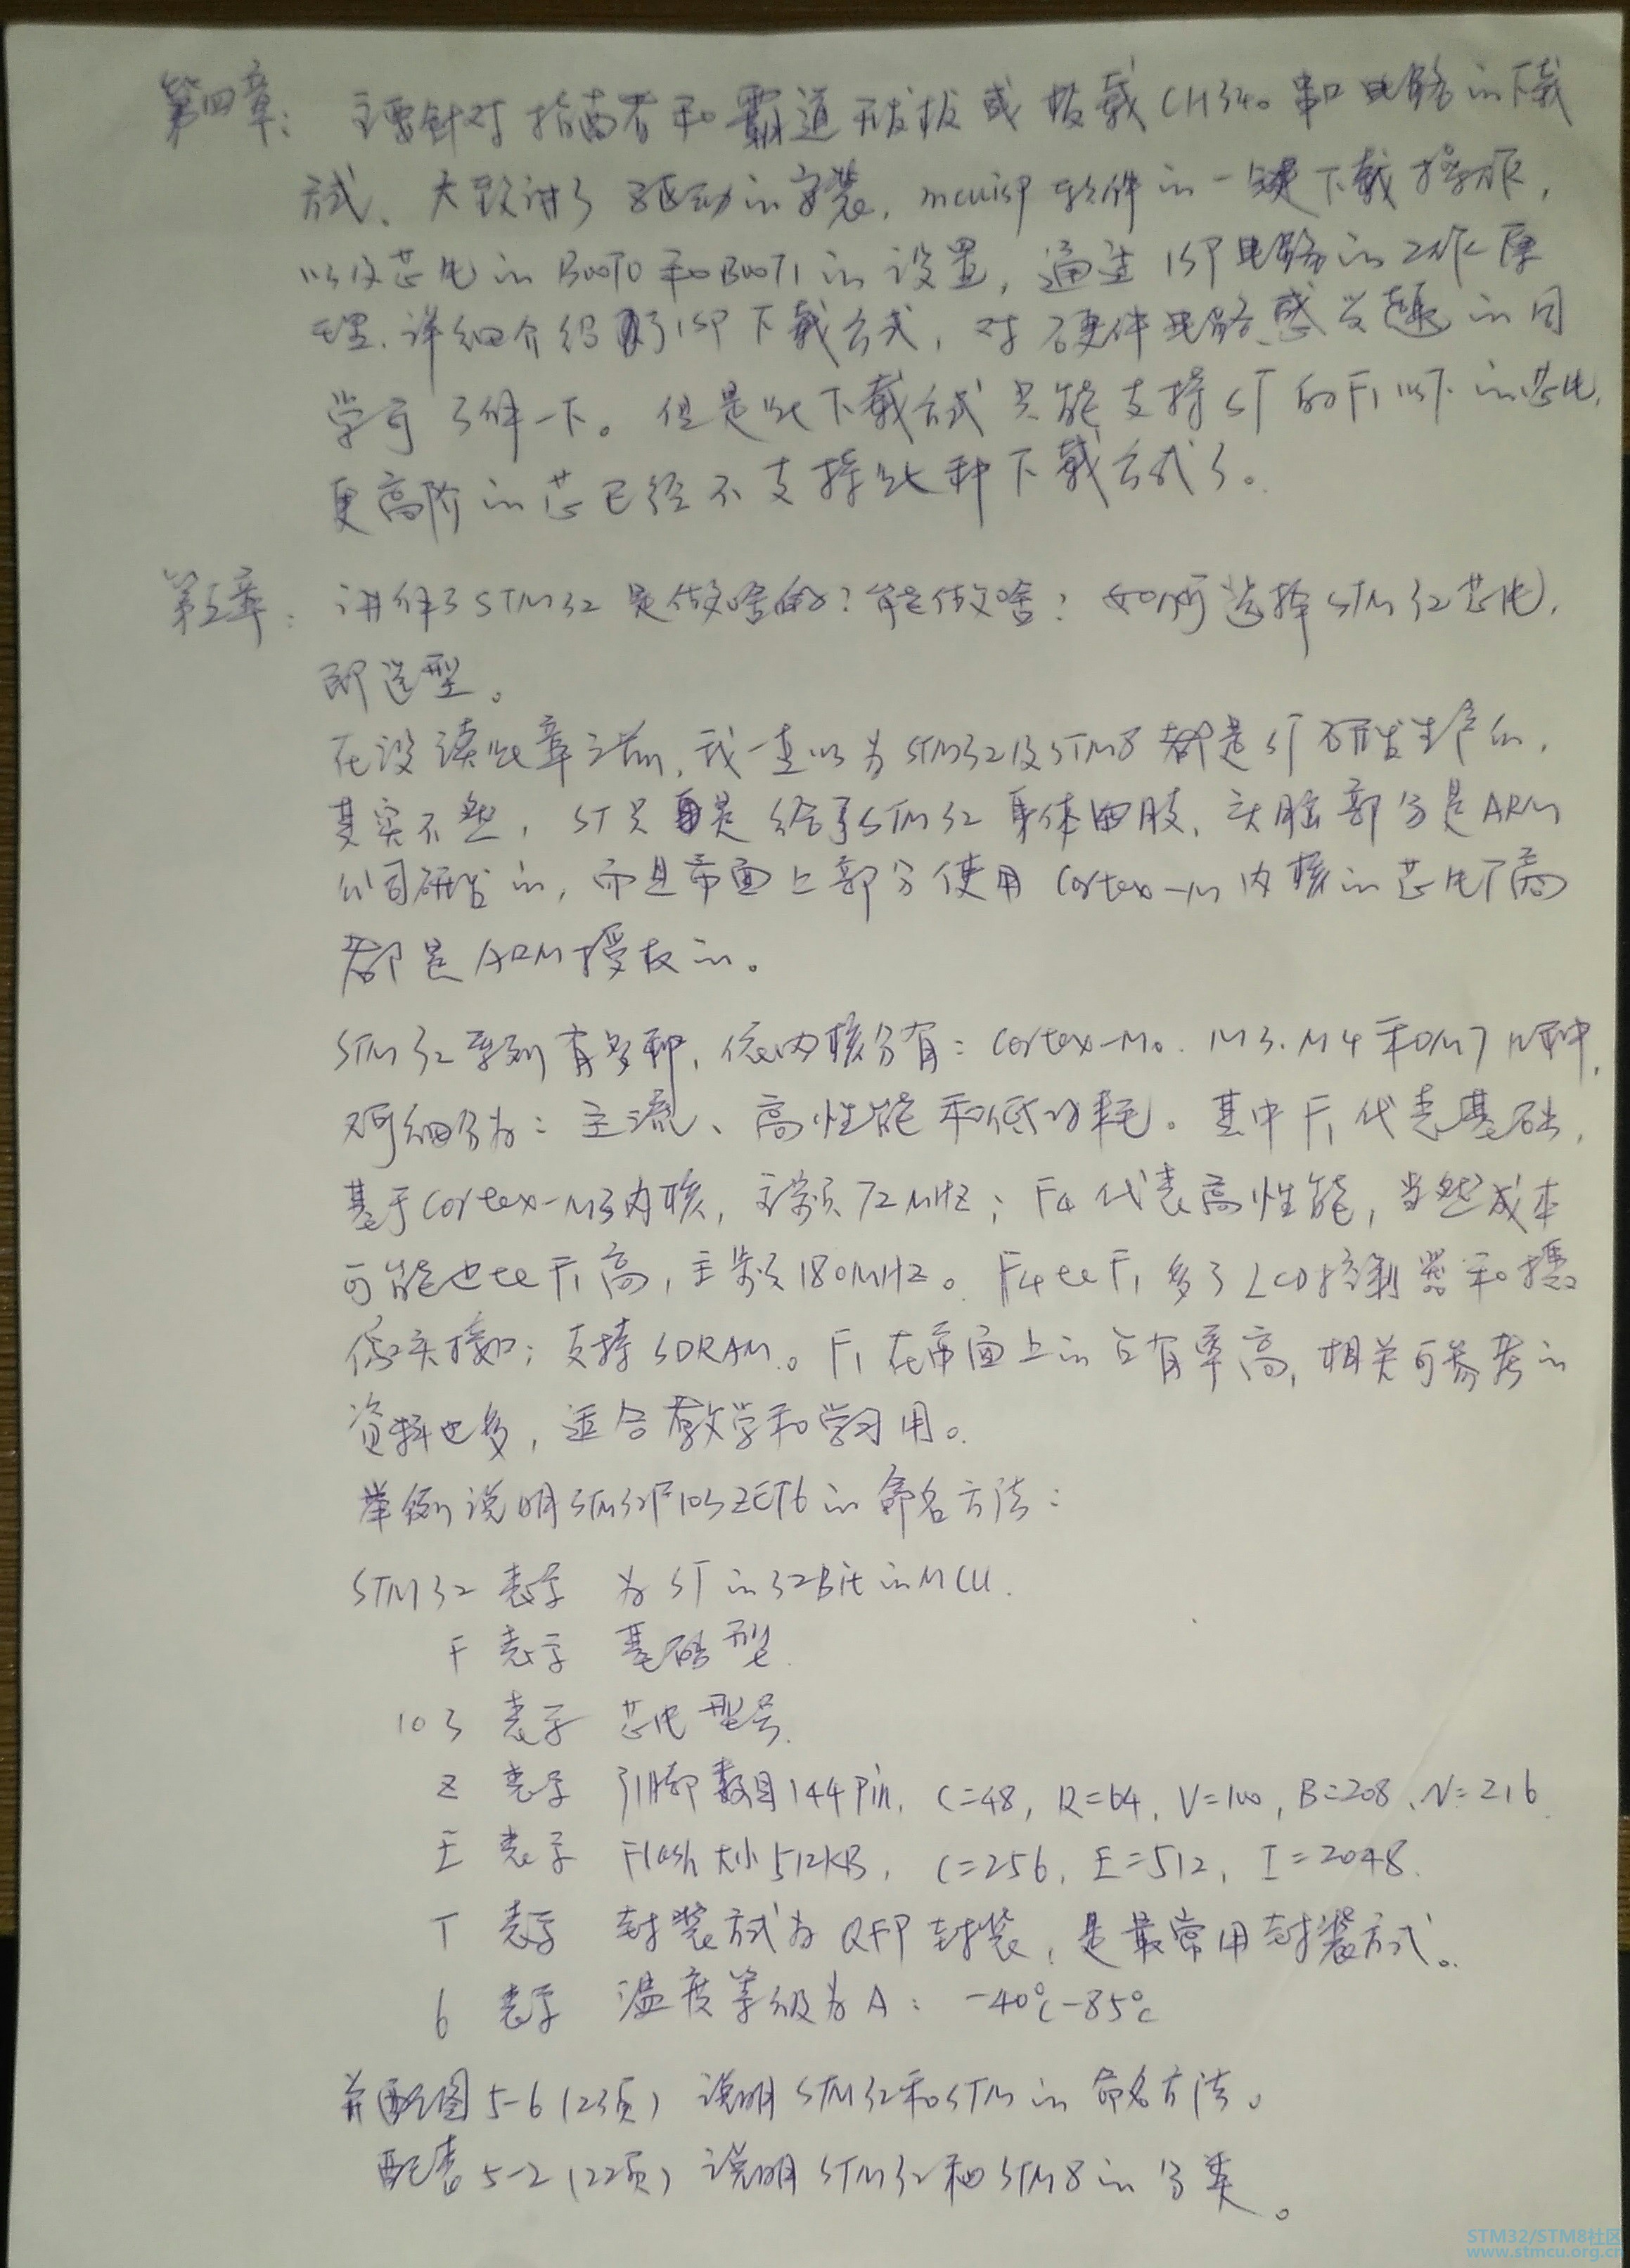 第四章: 主要针对指南者和霸道开发板或搭载CH340串口电路的下载
方式、大致讲了驱动的安装,mcuisp软件的一键下载操作,
以及芯片的BOOT0和BOOT1的设置,通过ISP电路的工作原
理、详细介绍了ISP下载方式,对硬件电路感兴趣的同
学可了解一下。但是此下载方式只能支持ST的F1以下的芯片,
更高阶的芯已经不支持此种下载方式了。
第五章: 讲解了STM32是做啥的?能做啥?如何选择STM32芯片,
即选型。
在没读此章之前,我一直以为STM32及STM8都是ST研发生产的,
其实不然,ST只是给了STM32身体四肢、头脑部分是ARM
公司研发的,而且市面上部分使用Cortex-M内核的芯片厂商
都是ARM授权的。
STM32系列有多种,依内核分有:Cortex-M0、M3、M4和M7几种,
又可细分为:主流、高性能和低功耗。其中F1代表基础,
基于Cortex-M3内核,主频72MHZ;F4代表高性能,当然成本
可能也比F1高,主频180MHZ。F4比F1多了LCD控制器和摄
像头接口;支持SDRAM。F1在市面上的占有率高,相关可参考的
资料也多,适合教学和学习用。
举例说明STM32F103ZET6的命名方法:
STM32 表示 为ST的32Bit的MCU.
F 表示 基础型.
103 表示 芯片型号.
Z 表示 引脚数目144Pin, C=48, R=64, V=100, B=208、N=216
E 表示 Flash大小512KB, C=256, E=512, I=2048.
T 表示 封装方式为QFP封装,是最常用封装方式。
6 表示 温度等级为A: -40℃-85℃
并配图5-6(23页)说明STM32和STM的命名方法。
配表5-2(22页)说明STM32和STM8的分类。
STM32/STM8社区
www.stmcu.org.cn